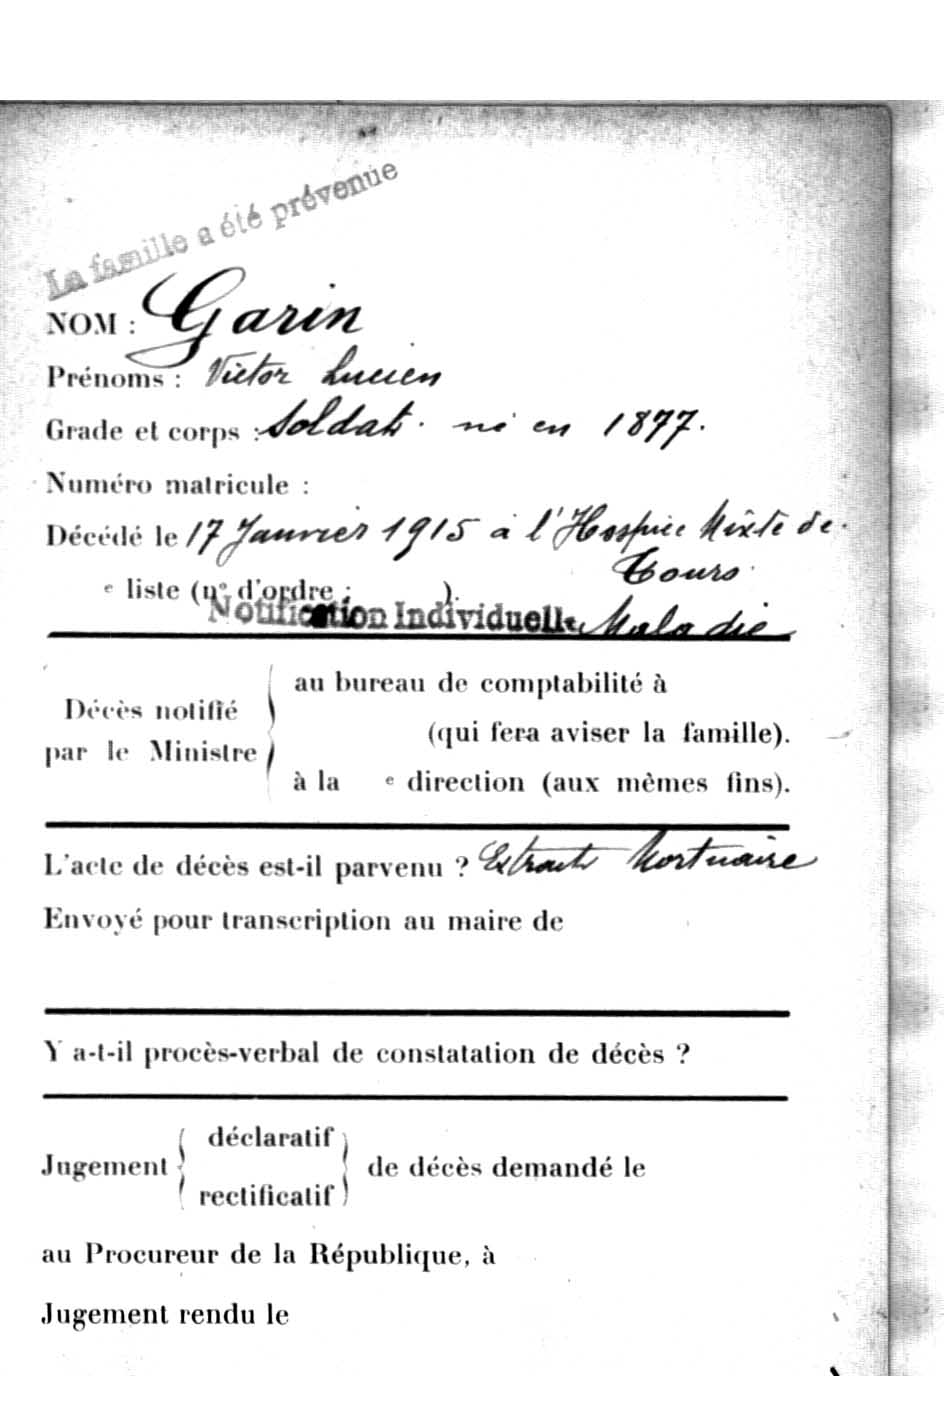 La famille a été prévenue
NOM : Garin
Prénoms : Victor Lucien
Grade et corps : Soldat. né en 1877.
Numéro matricule :
Décédé le 17 Janvier 1915 à l'Hospice Mixte de
Tours
e liste (n° d'ordre : ).
Notification Individuelle Maladie
Décès notifié par le Ministre
au bureau de comptabilité à
(qui fera aviser la famille).
à la e direction (aux mêmes fins).
L'acte de décès est-il parvenu ? Extrait Mortuaire
Envoyé pour transcription au maire de
Y a-t-il procès-verbal de constatation de décès ?
Jugement déclaratif rectificatif de décès demandé le
au Procureur de la République, à
Jugement rendu le